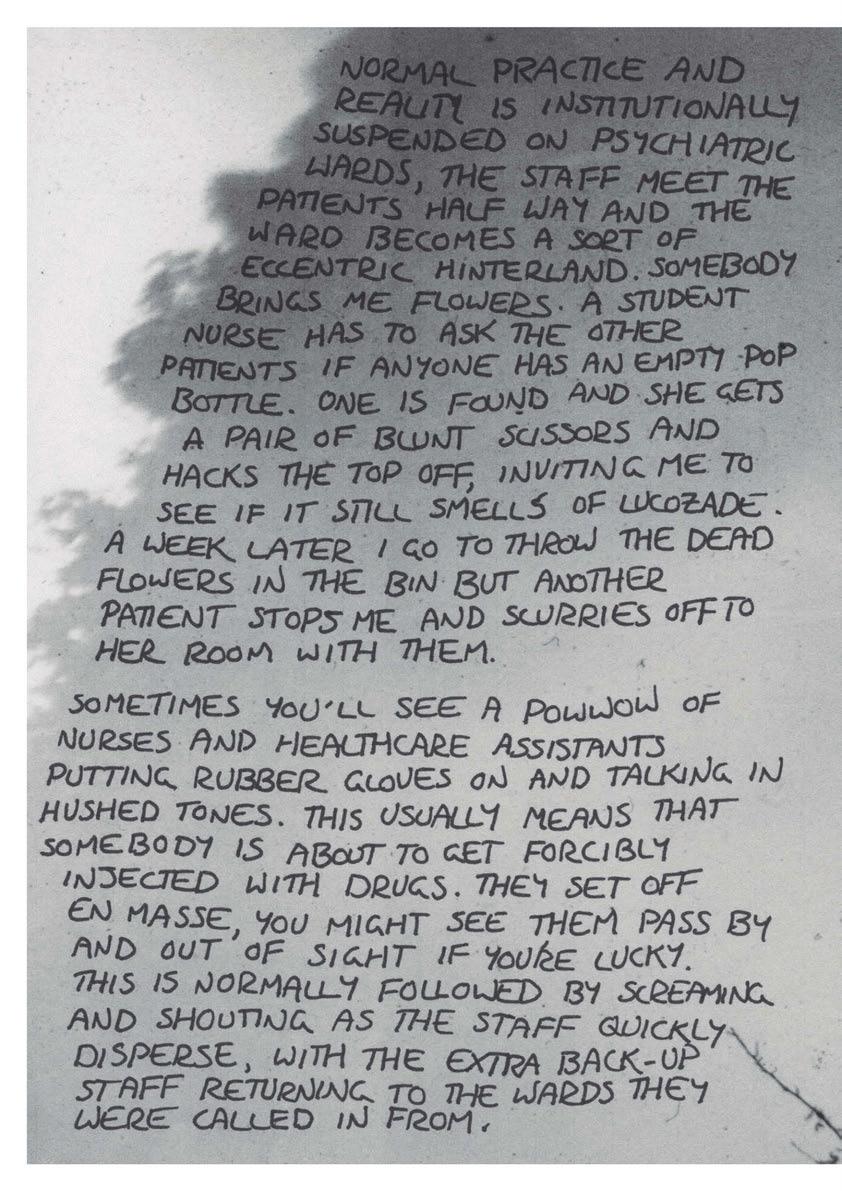 NORMAL PRACTICE AND
REALITY IS INSTITUTIONALLY
SUSPENDED ON PSYCHIATRIC
WARDS, THE STAFF MEET THE
PATIENTS HALF WAY AND THE
WARD BECOMES A SORT OF
ECCENTRIC HINTERLAND. SOMEBODY
BRINGS ME FLOWERS. A STUDENT
NURSE HAS TO ASK THE OTHER
PATIENTS IF ANYONE HAS AN EMPTY POP
BOTTLE. ONE IS FOUND AND SHE GETS
A PAIR OF BLUNT SCISSORS AND
HACKS THE TOP OFF, INVITING ME TO
SEE IF IT STILL SMELLS OF LUCOZADE.
A WEEK LATER I GO TO THROW THE DEAD
FLOWERS IN THE BIN BUT ANOTHER
PATIENT STOPS ME AND SCURRIES OFF TO
HER ROOM WITH THEM.
SOMETIMES YOU'LL SEE A POWWOW OF
NURSES AND HEALTHCARE ASSISTANTS
PUTTING RUBBER GLOVES ON AND TALKING IN
HUSHED TONES. THIS USUALLY MEANS THAT
SOMEBODY IS ABOUT TO GET FORCIBLY
INJECTED WITH DRUGS. THEY SET OFF
EN MASSE, YOU MIGHT SEE THEM PASS BY
AND OUT OF SIGHT IF YOU'RE LUCKY.
THIS IS NORMALLY FOLLOWED BY SCREAMING
AND SHOUTING AS THE STAFF QUICKLY
DISPERSE, WITH THE EXTRA BACK-UP
STAFF RETURNING TO THE WARDS THEY
WERE CALLED IN FROM.